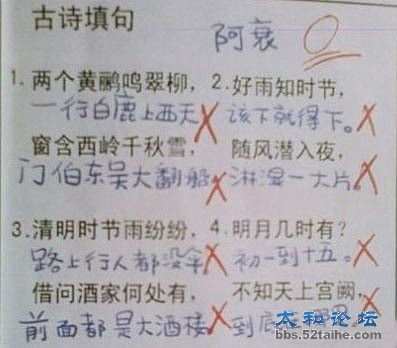 古诗填句
阿衰
0
1. 两个黄鹂鸣翠柳，
一行白鹿上西天
窗含西岭千秋雪，
门伯东吴大翻船
2. 好雨知时节，
该下就得下。
随风潜入夜，
淋湿一大片。
3. 清明时节雨纷纷，
路上行人都没伞
借问酒家何处有，
前面都是大酒楼
4. 明月几时有？
初一到十五。
不知天上宫阙，
到底
太和论坛
bbs.52taihe.com